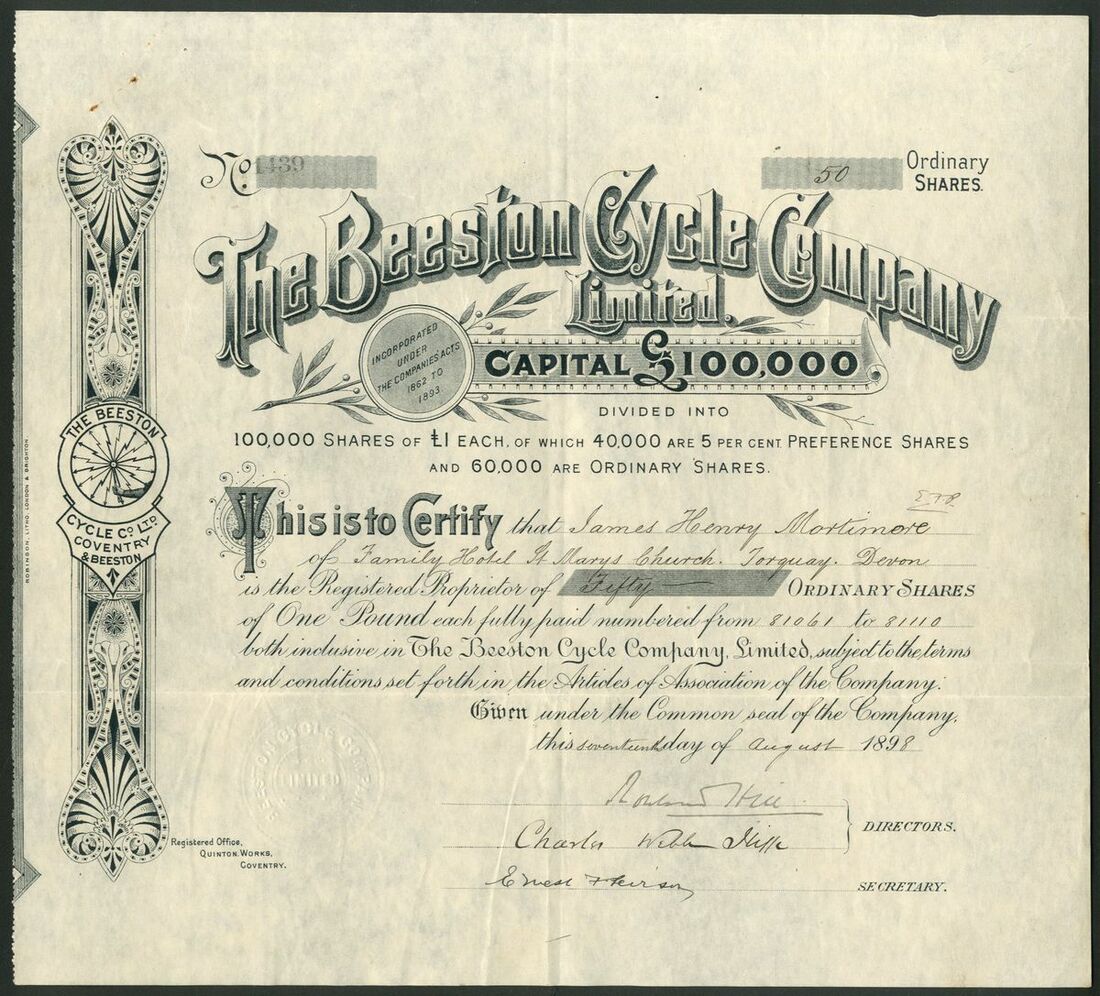 No. 1439
50 Ordinary
SHARES.
The Beeston Cycle Company
Limited.
INCORPORATED
UNDER
THE COMPANIES ACTS
1862 TO
1893.
CAPITAL £100,000
DIVIDED INTO
100,000 SHARES OF £1 EACH, OF WHICH 40,000 ARE 5 PER CENT. PREFERENCE SHARES
AND 60,000 ARE ORDINARY SHARES.
This is to Certify that James Henry Mortimore
of Family Hotel St Marys Church. Torquay. Devon
is the Registered Proprietor of Fifty ORDINARY SHARES
of One Pound each fully paid numbered from 81061 to 81110
both inclusive in The Beeston Cycle Company, Limited, subject to the terms
and conditions set forth in the Articles of Association of the Company.
Given under the Common seal of the Company,
this seventeenth day of August 1898
Rowland Hill
Charles Webb Iliffe
DIRECTORS.
Ernest SECRETARY.
Registered Office,
QUINTON WORKS,
COVENTRY.
THE BEESTON
CYCLE CO. LTD
COVENTRY
& BEESTON
ROBINSON, LITHO, LONDON & BRIGHTON
BEESTON CYCLE COMPANY
LIMITED